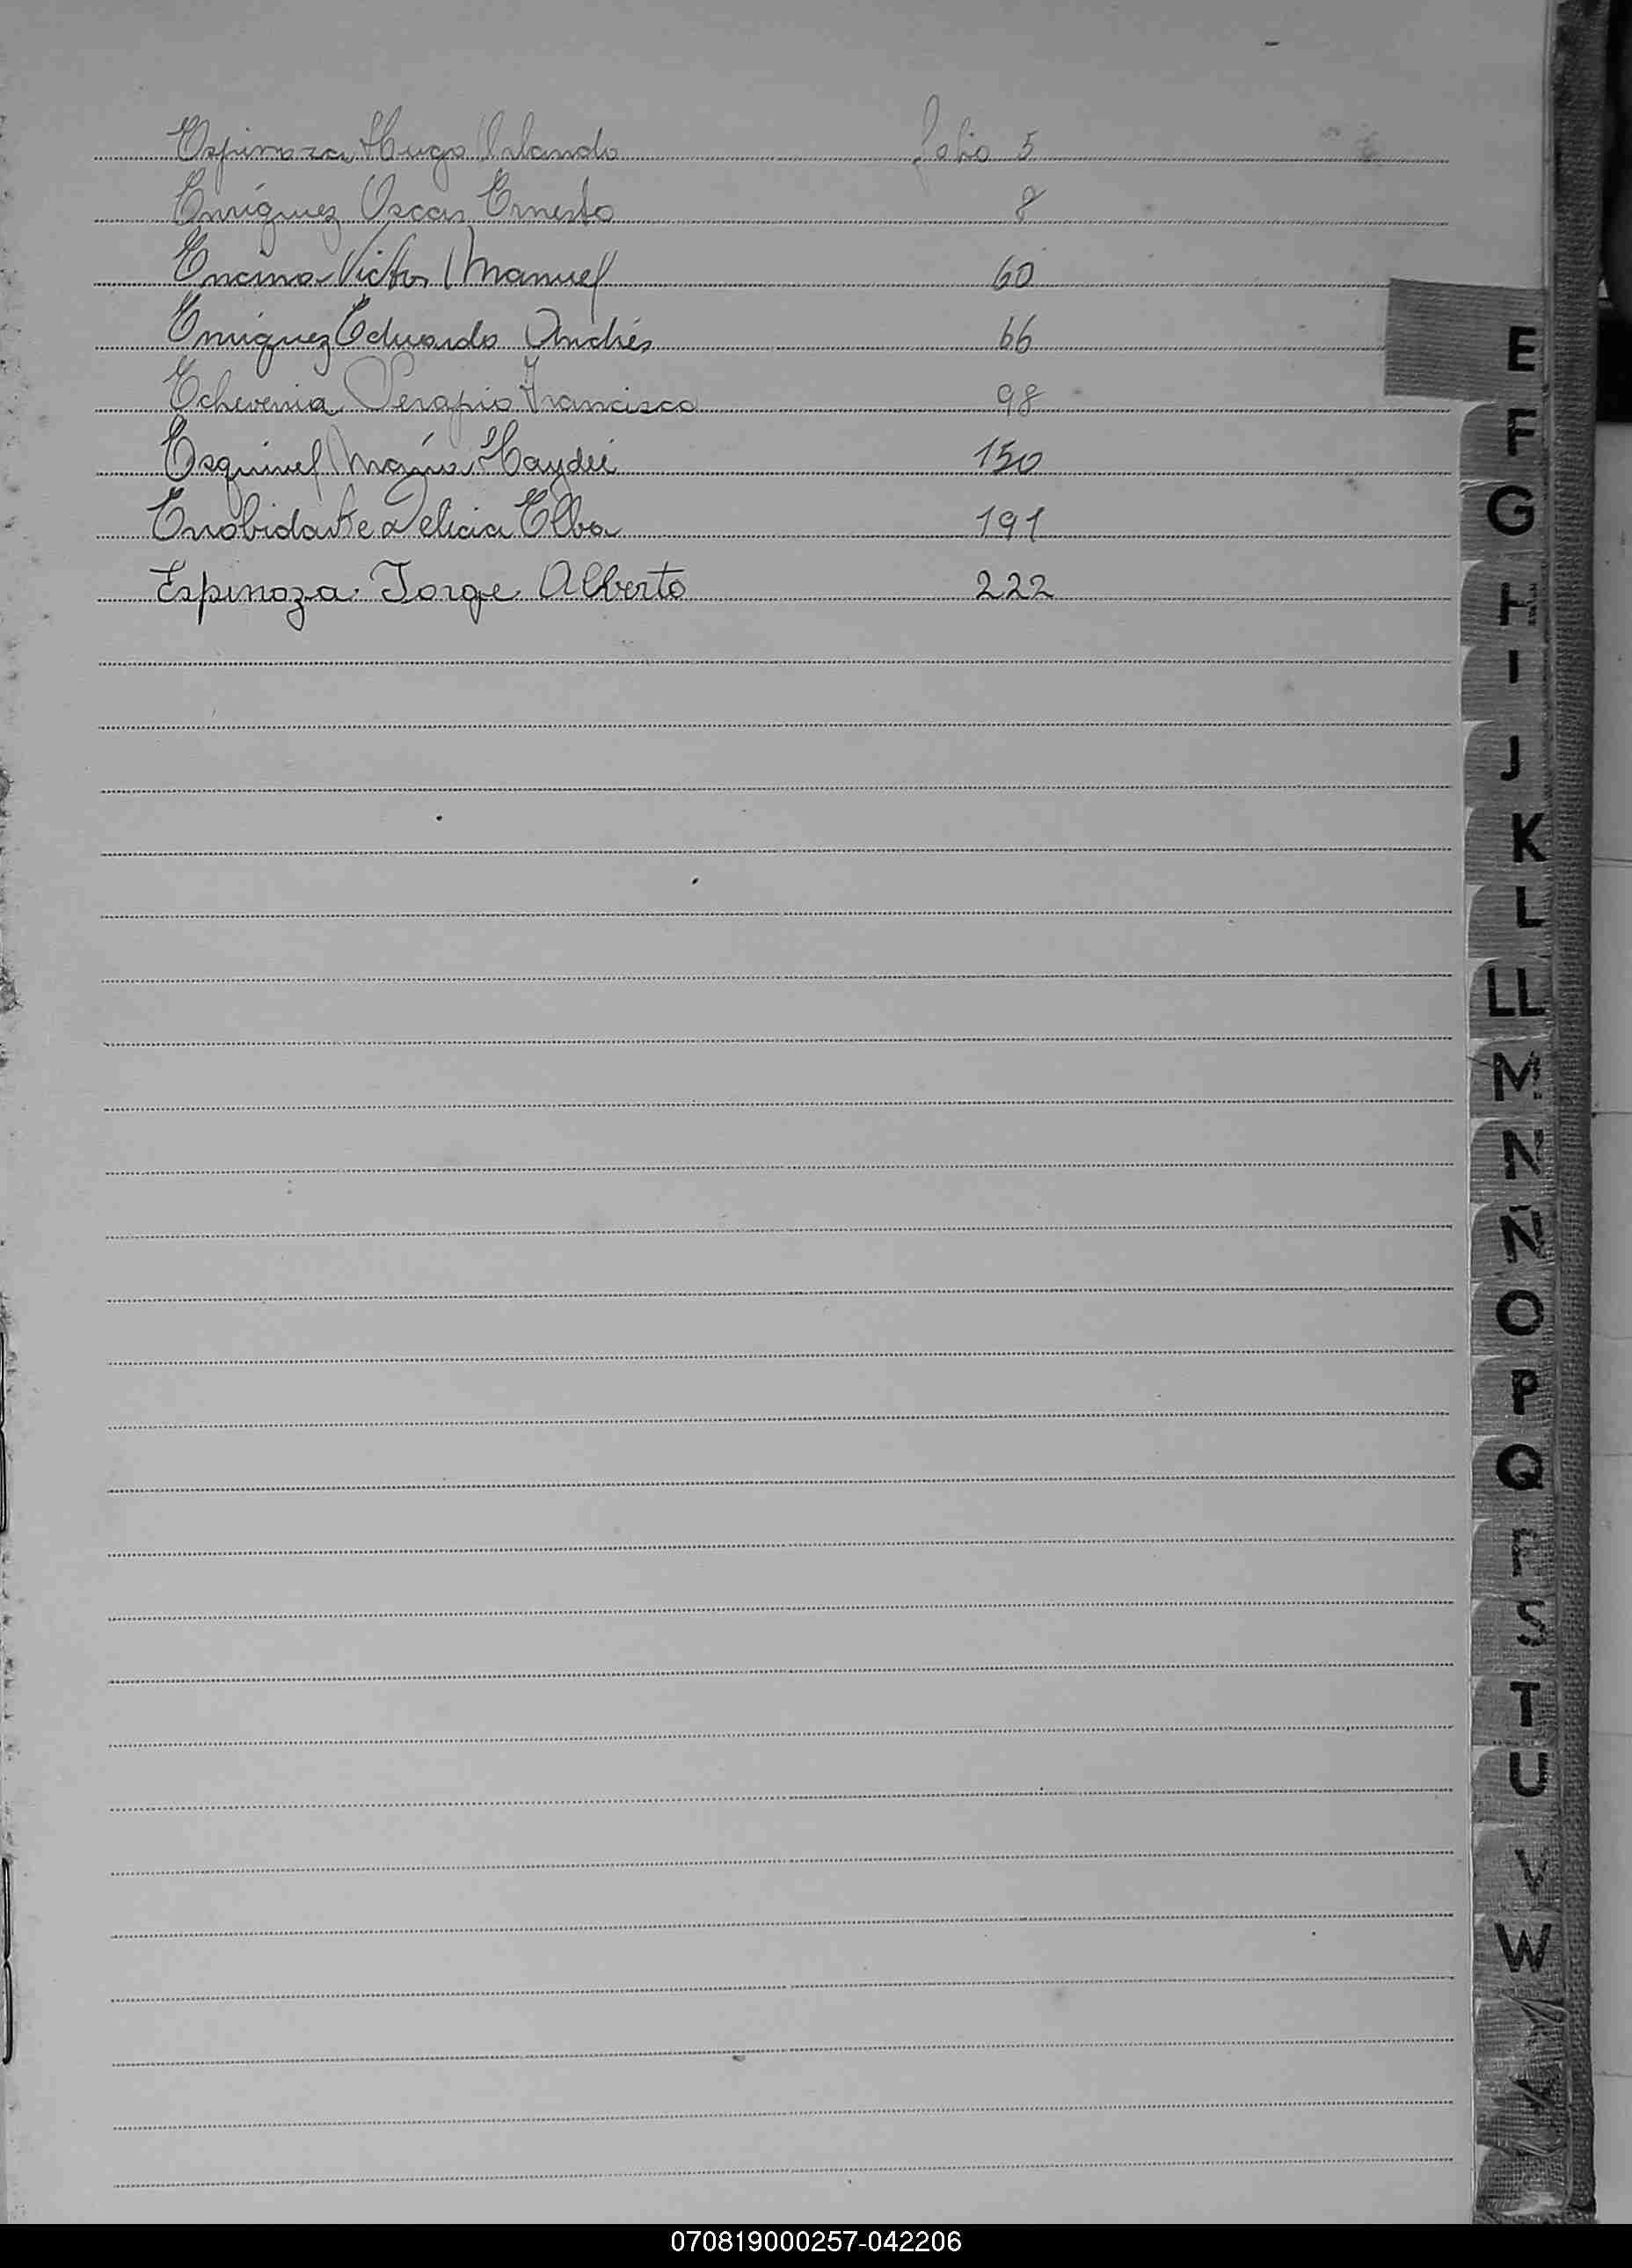 Espinoza Hugo Orlando folio 5
Enriquez Oscar Ernesto 8
Encina Victor Manuel 60
Enriquez Eduardo Andrés 66
Echeverria Serapio Francisco 98
Esquivel María Haydeé 150
Delicia Elba 191
Espinoza Jorge Alberto 222
E
F
G
H
I
J
K
L
LL
M
N
Ñ
O
P
Q
R
S
T
U
V
W
070819000257-042206